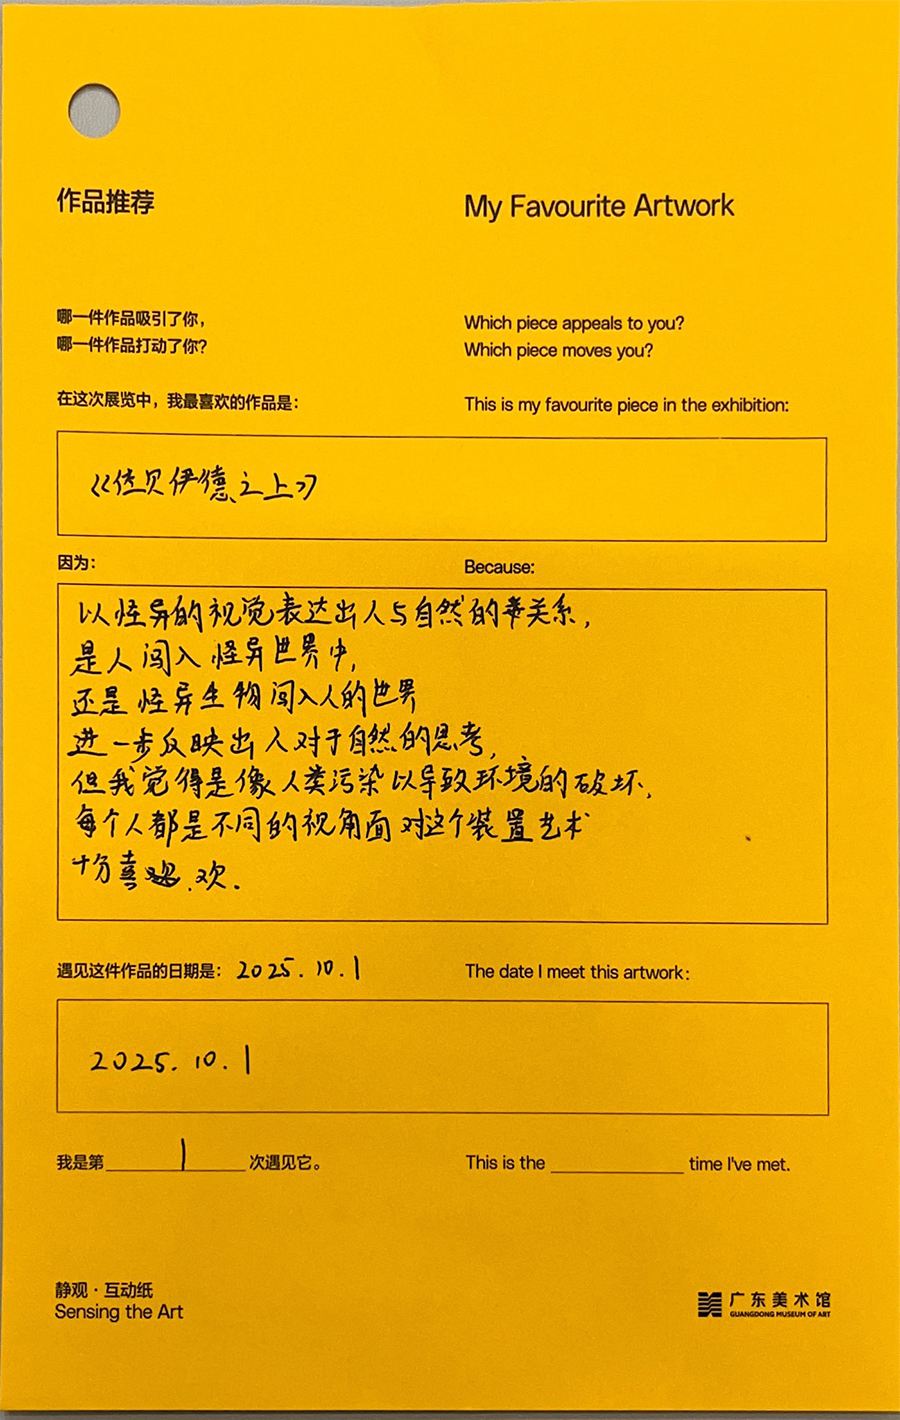 作品推荐
My Favourite Artwork
哪一件作品吸引了你，
哪一件作品打动了你？
Which piece appeals to you?
Which piece moves you?
在这次展览中，我最喜欢的作品是：
This is my favourite piece in the exhibition:
《佐贝伊德之上》
因为：
Because:
以怪异的视觉表达出人与自然的关系，
是人闯入怪异世界中，
还是怪异生物闯入人的世界
进一步反映出人对于自然的思考，
但我觉得是像人类污染以导致环境的破坏，
每个人都是不同的视角面对这个装置艺术
十分喜欢.
遇见这件作品的日期是：2025.10.1
The date I meet this artwork:
2025.10.1
我是第 1 次遇见它。
This is the time I've met.
静观·互动纸
Sensing the Art
广东美术馆
GUANGDONG MUSEUM OF ART